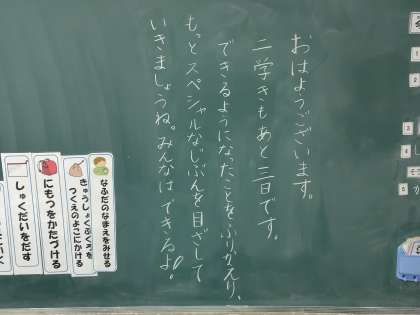 おはようございます。
二学きもあと三日です。
できるようになったことをふりかえり、
もっとスペシャルなじぶんを目ざして
いきましょうね。みんなはできるよ!
なふだのなまえをみせる
きゅうしょくぶくろを
つくえのよこにかける
にもつをかたづける
しゅくだいをだす